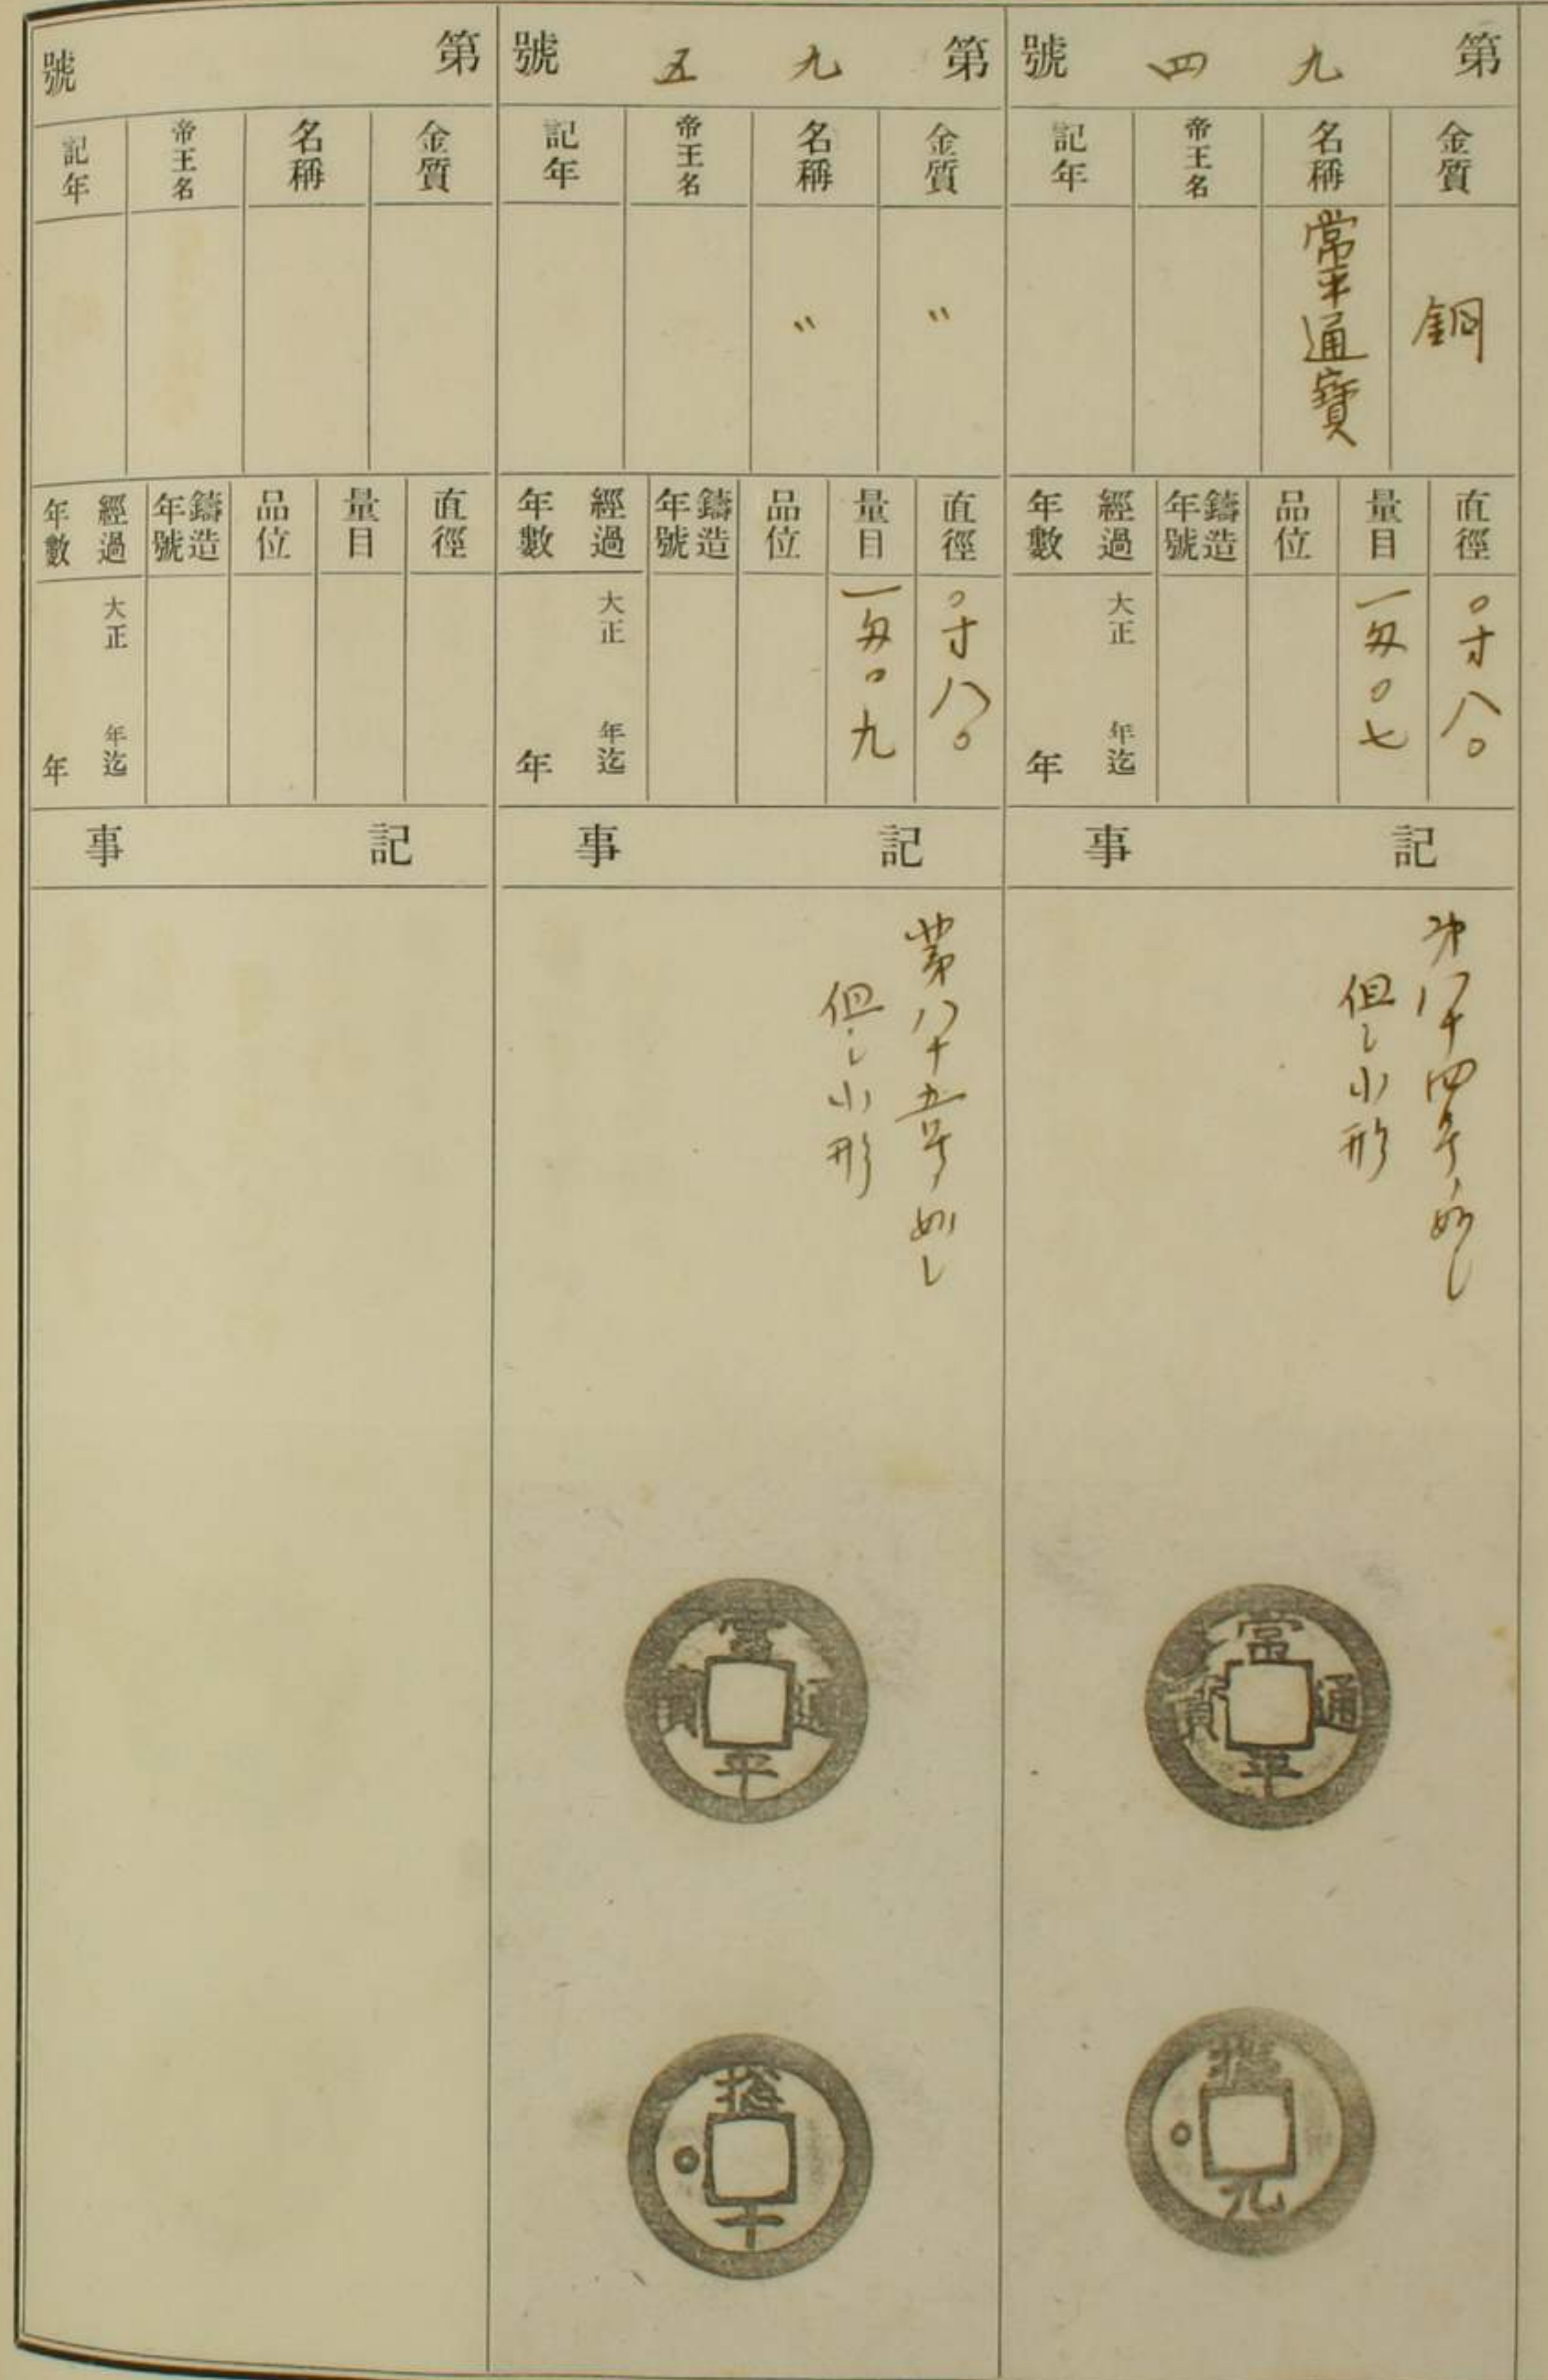 第九四號
金質
銅
名稱
常平通寶
帝王名
記年
直徑
〇寸八〇
量目
一匁〇七
品位
鑄造年號
經過年數
大正 年迄
年
記事
第八十四号ノ如し
但し小形
常平通寶
摠
九
第九五號
金質
〃
名稱
〃
帝王名
記年
直徑
〇寸八〇
量目
一匁〇九
品位
鑄造年號
經過年數
大正 年迄
年
記事
第八十五号ノ如し
但し小形
常平通寶
摠
十
第 號
金質
名稱
帝王名
記年
直徑
量目
品位
鑄造年號
經過年數
大正 年迄
年
記事